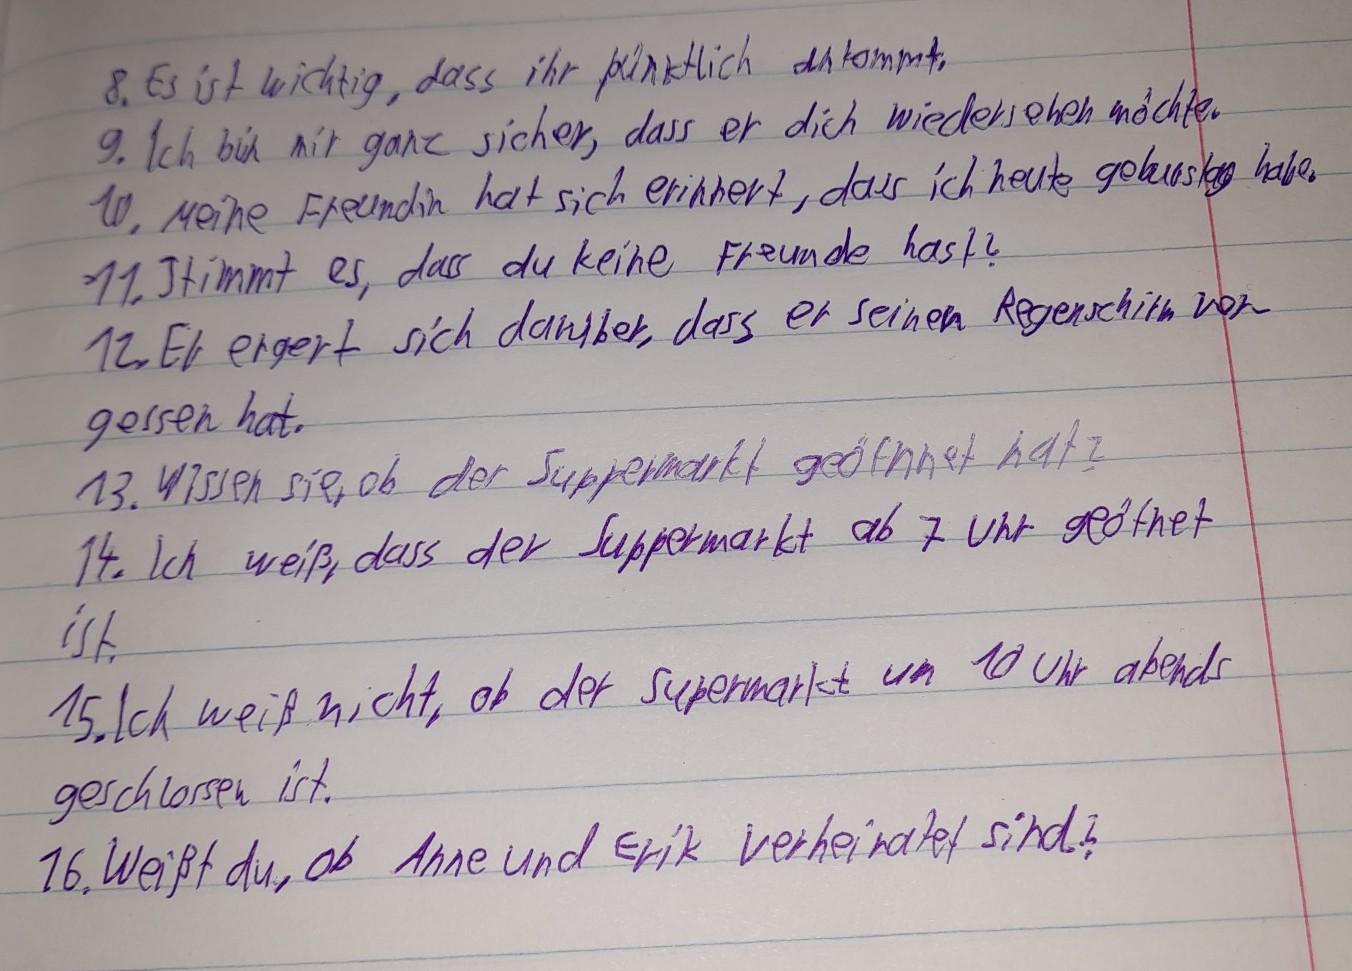 8. Es ist wichtig, dass ihr pünktlich ankommt.
9. Ich bin mir ganz sicher, dass er dich wiedersehen möchte.
10. Meine Freundin hat sich erinnert, dass ich heute geburstag habe.
11. Stimmt es, dass du keine Freunde hast?
12. Er ergert sich darüber, dass er seinen Regenschirm ver
gessen hat.
13. Wissen sie, ob der Suppermarkt geöfnnet hat?
14. Ich weiß, dass der Suppermarkt ab 7 Uhr geöfnet
ist.
15. Ich weiß nicht, ob der Supermarkt um 10 Uhr abends
geschlossen ist.
16. Weißt du, ob Anne und Erik verheiratet sind?